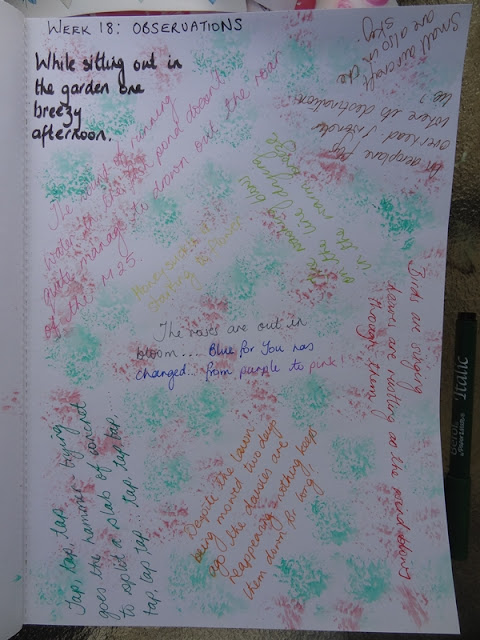 WEEK 18: OBSERVATIONS
While sitting out in
the garden one
breezy
afternoon.
The sound of running
water in the fish pond doesn't
quite manage to drown out the roar
of the M25
Honeysuckle is
starting to flower
The washing blows
on the line drying
in the warm breeze
An aeroplane flys
overhead I wonder
where its destination
is?
Small aircraft
are also in the
sky.
Birds are singing
leaves are rustling as the wind blows
through them
The roses are out in
bloom.... Blue for You has
changed... from purple to pink!
Tap, tap, tap
goes the hammer trying
to split a slab of concrete
tap, tap tap... tap, tap tap
Despite the lawn
being mowed two days
ago the daisies are
reappearing nothing keeps
them down for long!!
BEROL
Italic